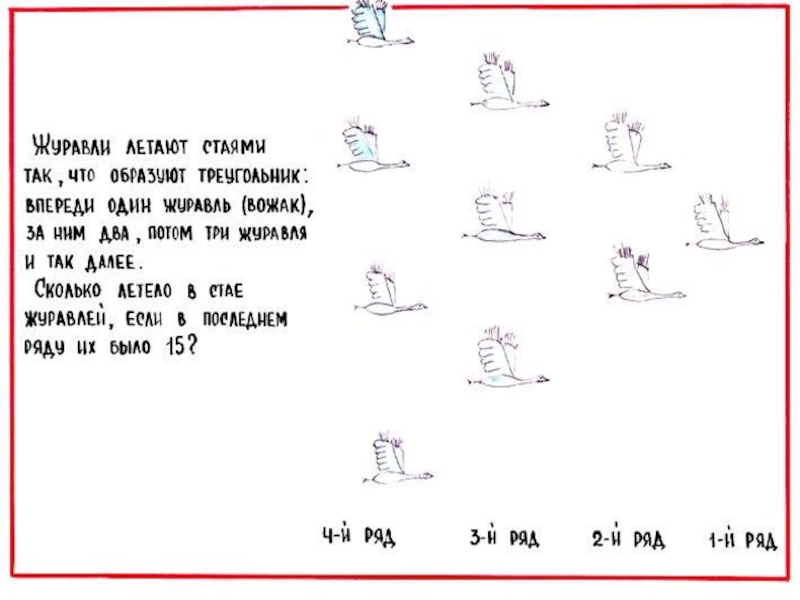 Журавли летают стаями
так, что образуют треугольник:
впереди один журавль (вожак),
за ним два, потом три журавля
и так далее.
Сколько летело в стае
журавлей, если в последнем
ряду их было 15?
4-й ряд 3-й ряд 2-й ряд 1-й ряд